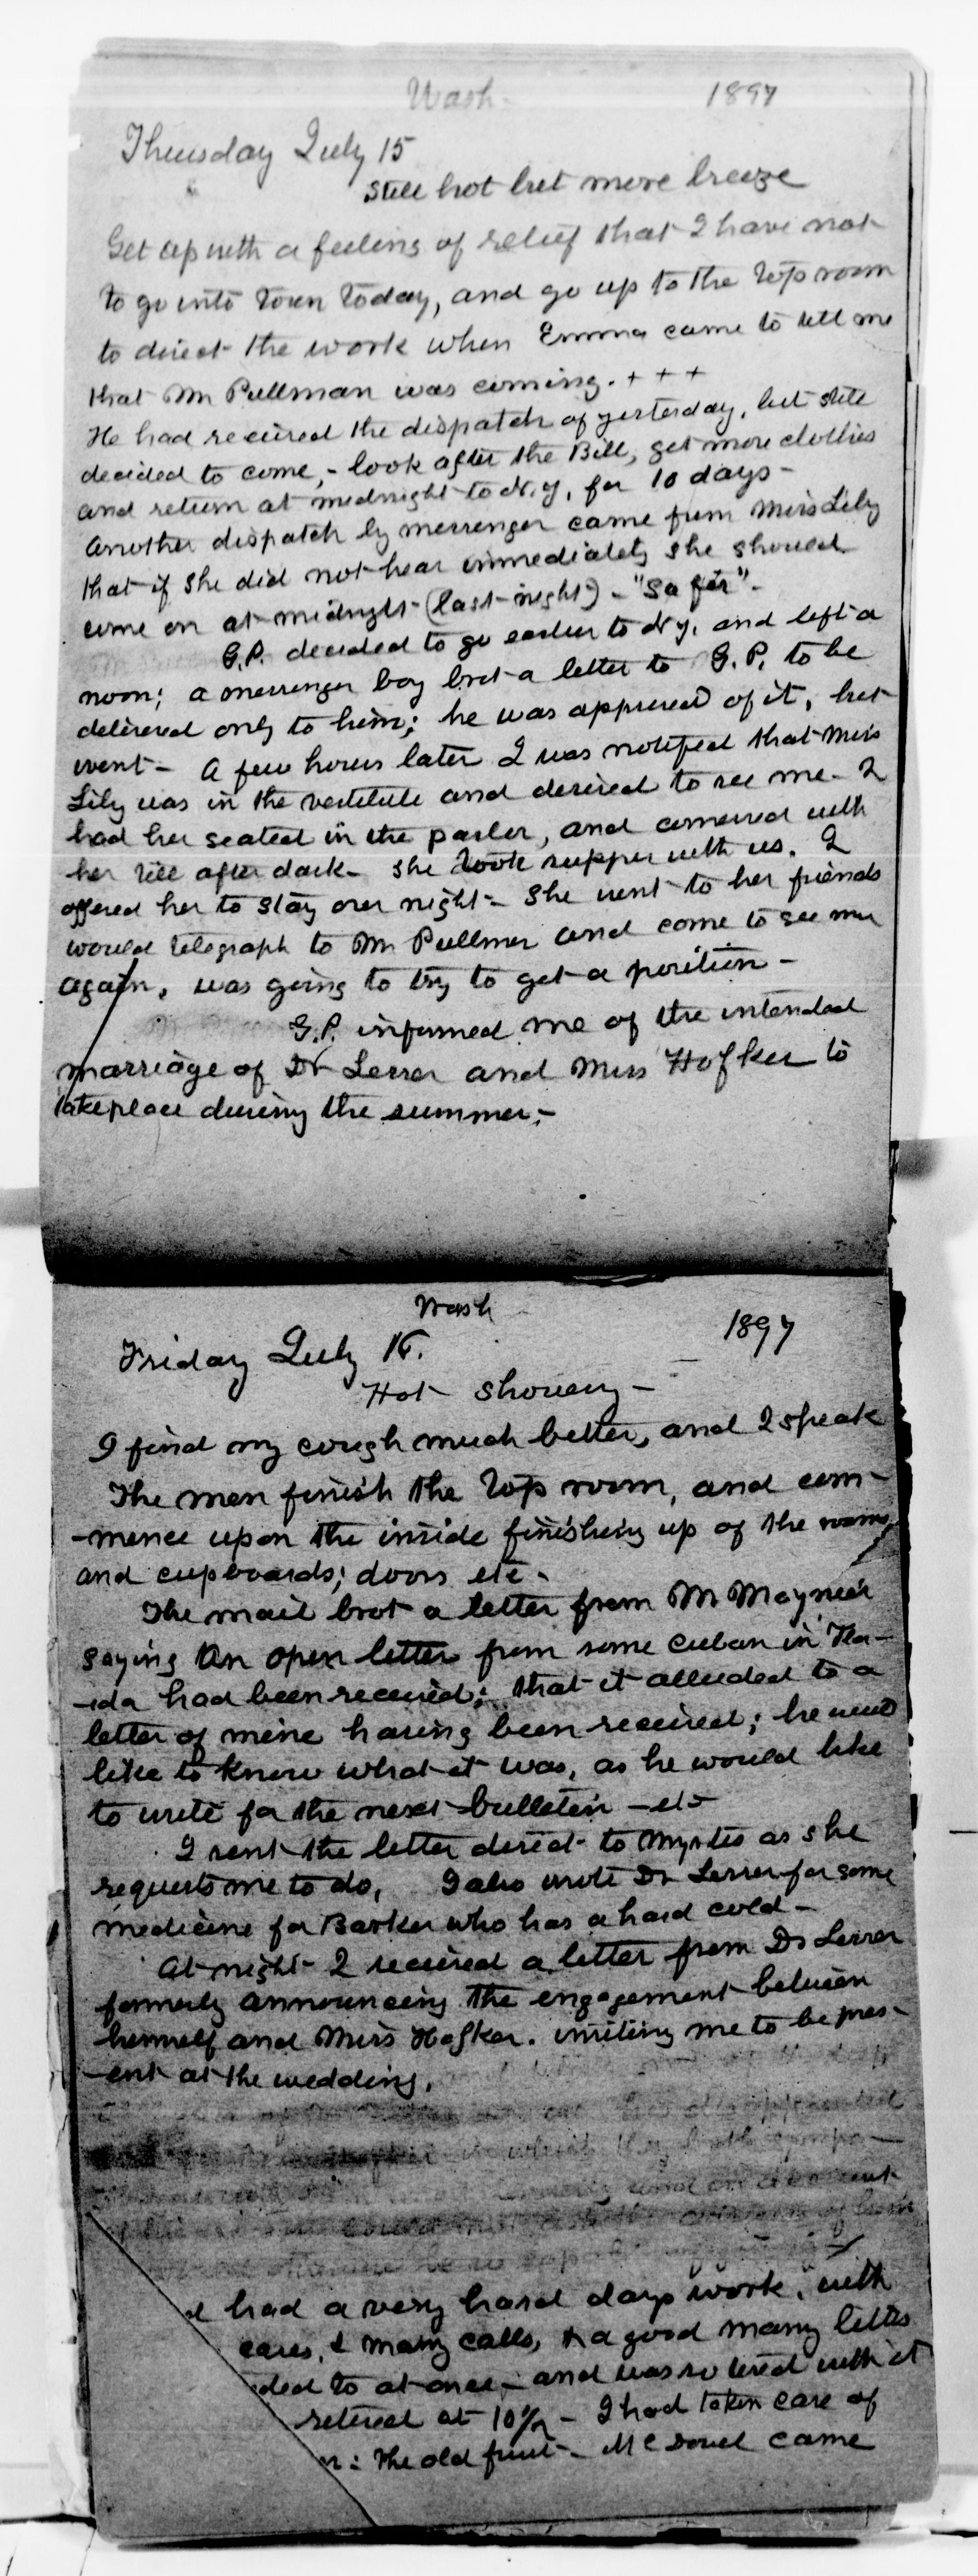 Wash. 1897
Thursday July 15
Still hot but more breeze
Get up with a feeling of relief that I have not
to go into town today, and go up to the top room
to direct the work when Emma came to tell me
that Mr Pullman was coming. + + +
He had received the dispatch of yesterday, but still
decided to come, - look after the Bill, get more clothes
and return at midnight to N.Y, for 10 days -
Another dispatch by messenger came from Miss Lily
that if she did not hear immediately she should
come on at midnight (last night) - "So far" -
G.P. decided to go earlier to N.Y. and left a
noon; a messenger boy brot a letter to G.P. to be
delivered only to him; he was apprised of it, but
went - A few hours later I was notified that Miss
Lily was in the vestibule and desired to see me - I
had her seated in the parlor, and conversed with
her till after dark - she took supper with us. I
offered her to stay over night - She went to her friends
would telegraph to Mr Pullmer and come to see me
again, was going to try to get a position -
G.P. informed me of the intended
marriage of Dr Lesser and Miss Hofker to
take place during the summer, -
Wash 1897
Friday July 16.
Hot - showery -
I find my cough much better, and I speak
The men finish the top room, and com-
-mence upon the inside finishing up of the rooms,
and cupboards; doors etc -
The mail brot a letter from Mr
saying an open letter from some Cuban in Flor-
-ida had been received; that it alluded to a
letter of mine having been received; he would
like to know what it was, as he would like
to write for the next bulletin - etc
I sent the letter direct to Myrtis as she
requests me to do, I also wrote Dr Lesser for some
medicine for Barker who has a hard cold -
At night I received a letter from Dr Lesser
formerly announcing the engagement between
himself and Miss Hofker. inviting me to be pres-
-ent at the wedding.
had a very hard days work, with
cares, & many calls, & a good many letters
ded to at once - and was so tired with it
retired at 10½ - I had taken care of
n: the old fruit - McDowel came